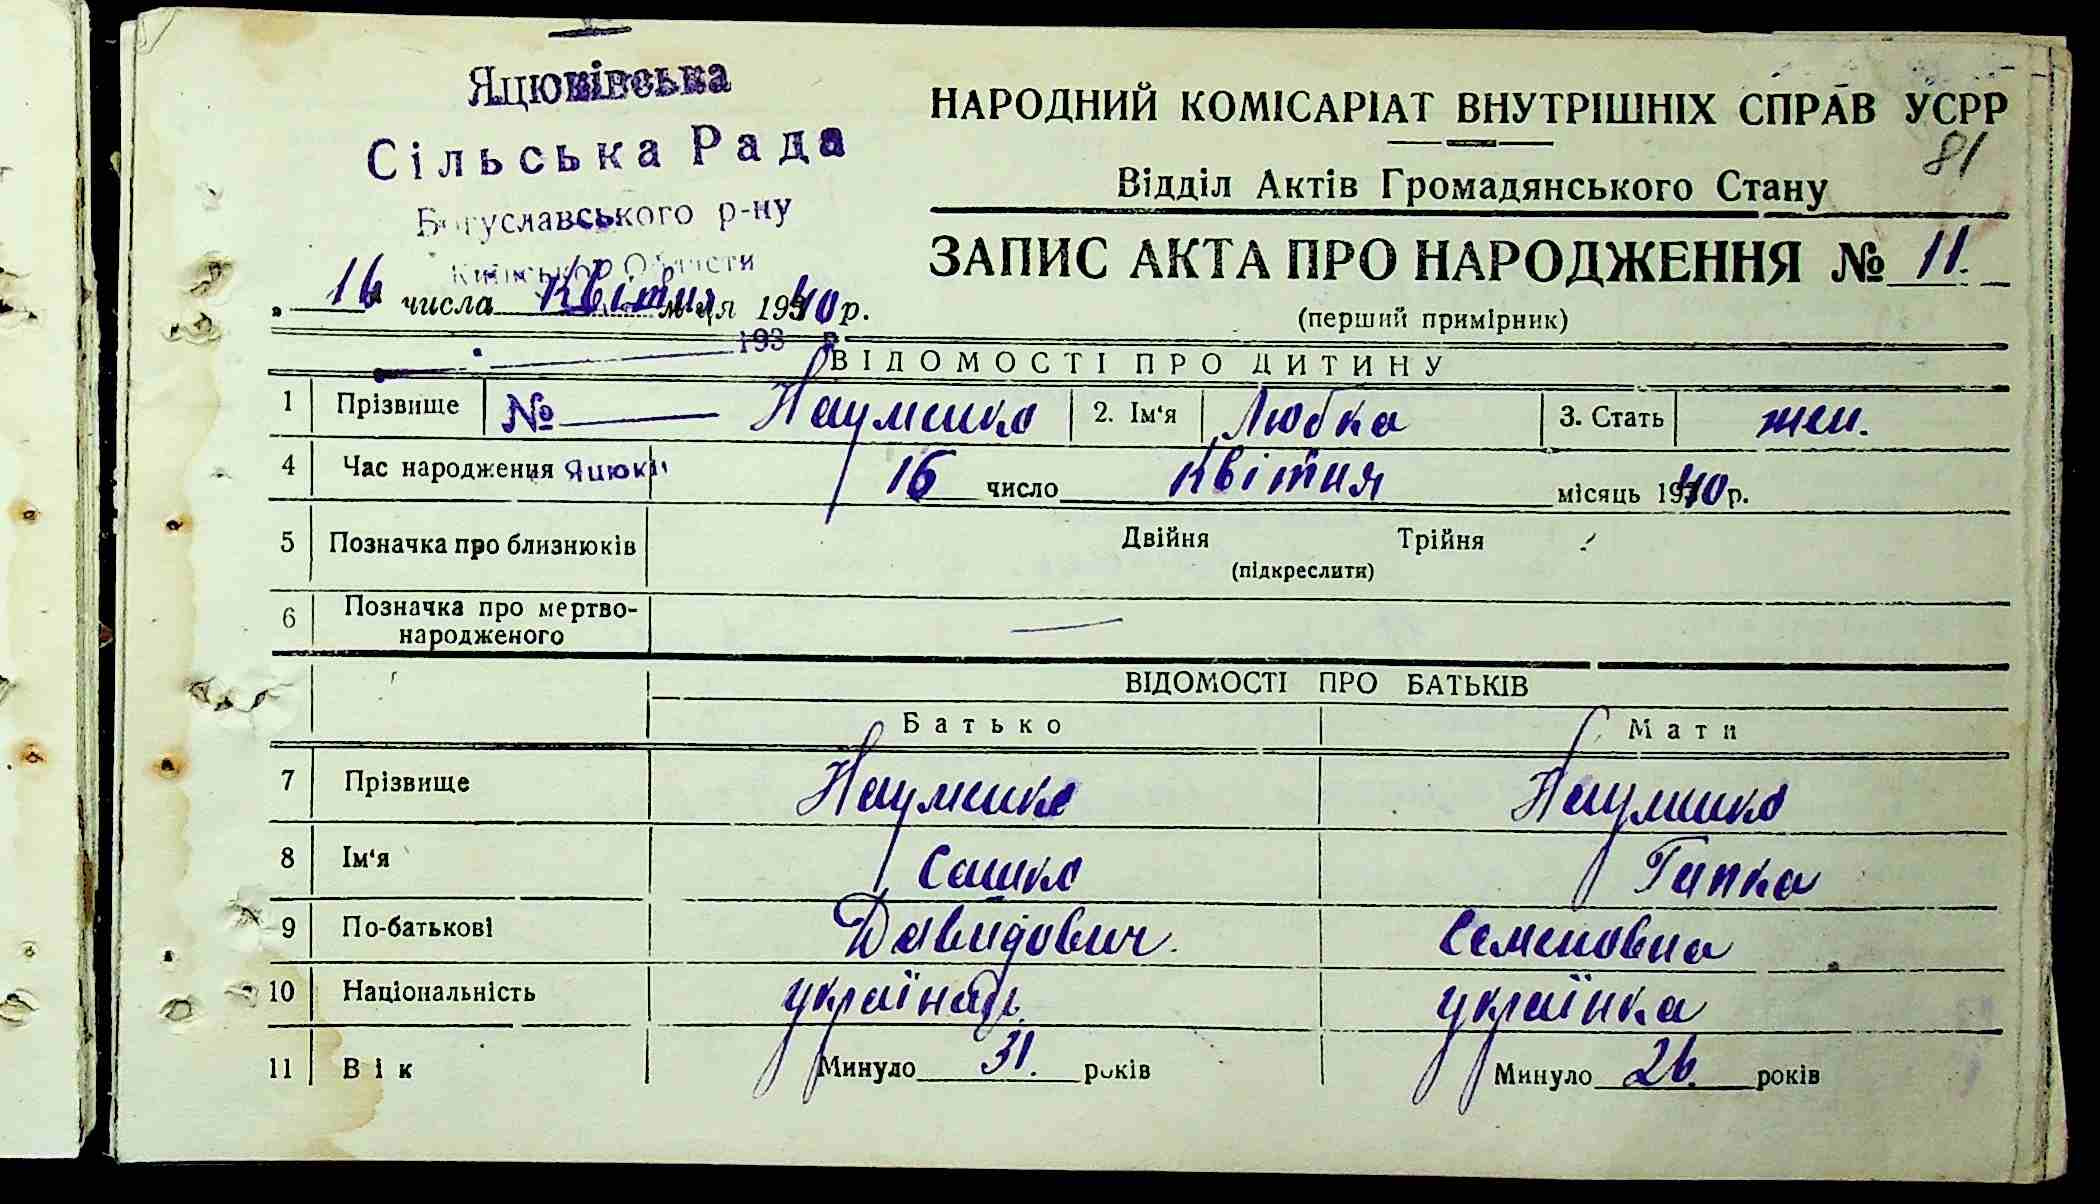 Яцюківська
Сільська Рада
Богуславського р-ну
Київської Области
16 числа Квітня м-ця 1940 р.
193 р.
№
Яцюки
НАРОДНИЙ КОМІСАРІАТ ВНУТРІШНІХ СПРАВ УСРР
81
Відділ Актів Громадянського Стану
ЗАПИС АКТА ПРО НАРОДЖЕННЯ № 11.
(перший примірник)
ВІДОМОСТІ ПРО ДИТИНУ
1 Прізвище Науменко 2. Ім‘я Любка 3. Стать жен.
4 Час народження 16 число Квітня місяць 1940 р.
5 Позначка про близнюків Двійня Трійня
(підкреслити)
6 Позначка про мертво-
народженого —
ВІДОМОСТІ ПРО БАТЬКІВ
Батько Мати
7 Прізвище Науменко Науменко
8 Ім‘я Сашко Гапка
9 По-батькові Давидович. Семеновна
10 Національність українець українка
11 Вік Минуло 31. років Минуло 26. років